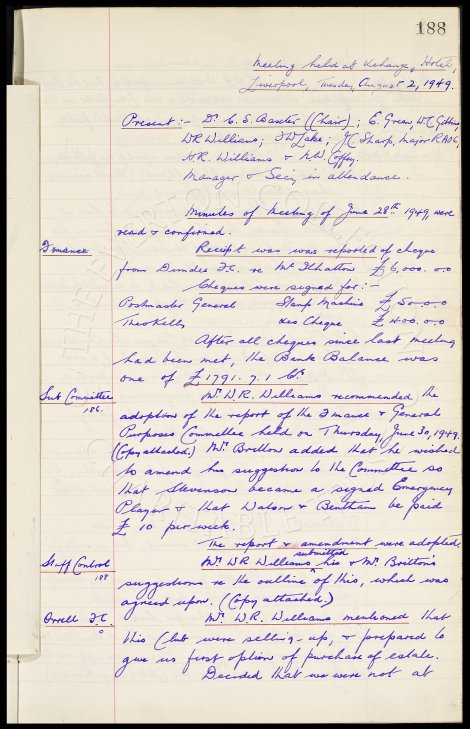 188
Meeting held at Exchange Hotel,
Liverpool, Tuesday, August 2, 1949.
Present:- Dr. C. S. Baxter (Chair); E. Green, W.C. Gibbins,
W.R. Williams; T.W. Lake; J.C. Sharp, Major R.
H.R. Williams & N.W. Coffey.
Manager & Secy in attendance.
Minutes of Meeting of June 28th 1949, were
read & confirmed.
Finance Receipt was was reported of cheque
from Dundee F.C. re Mc Ilhatton £6,000.0.0
Cheques were signed for:-
Postmaster General Stamp Machine £50-0-0
Theo Kelly Xes Cheque £400.0.0
After all cheques since last meeting
had been met, the Bank Balance was
one of £1791.7.1 Cr.
Sub Committee Mr. W.R. Williams recommended the
186. adoption of the report of the Finance & General
Purposes Committee held on Thursday, June 30, 1949.
(Copy attached.) Mr. Britton added that he wished
to amend his suggestion to the Committee so
that Stevenson became a signed Emergency
Player & that Watson & Bentham be paid
£10 per week.
The report & amendment were adopted.
Staff Control Mr. W R Williams submitted his & Mr. Britton's
188 suggestions re the outline of this, which was
agreed upon. (Copy attached.)
Orrell F.C. Mr. W.R. Williams mentioned that
this Club were selling-up, & prepared to
give us first option of purchase of estate.
Decided that we were not at